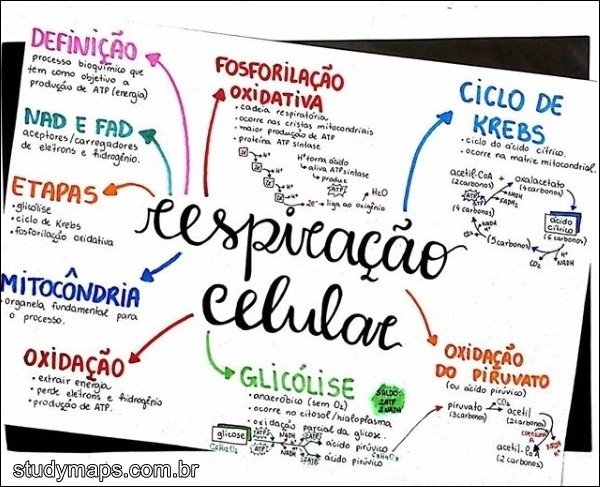 DEFINIÇÃO
processo bioquímico que
tem como objetivo a
produção de ATP (energia)
NAD E FAD
aceptores/carregadores
de elétrons e hidrogênio.
ETAPAS
• glicólise
• ciclo de Krebs
• fosforilação oxidativa
MITOCÔNDRIA
• organela fundamental para
o processo.
OXIDAÇÃO
• extrair energia
• perde elétrons e hidrogênio
• produção de ATP.
FOSFORILAÇÃO
OXIDATIVA
• cadeia respiratória
• ocorre nas cristas mitocondriais
• maior produção de ATP
• proteína ATP sintase
H⁺ torna ácido
↳ ativa ATP sintase
↳ produz
ATP
H₂O
2e⁻ → liga ao oxigênio
respiração
celular
CICLO DE
KREBS
• ciclo do ácido cítrico.
• ocorre na matriz mitocondrial.
acetil-CoA + oxalacetato
(2 carbonos) (4 carbonos)
NADH
FADH₂
ATP
(4 carbonos)
ácido
cítrico
(6 carbonos)
(5 carbonos)
CO₂
H⁺
NADH
CO₂
GLICÓLISE
• anaeróbico (sem O₂)
• ocorre no citosol/hialoplasma
• oxidação parcial da glicose.
SALDO:
2ATP
2NADH
glicose
C₆H₁₂O₆
2ATP
NADH
H⁺
NADH
2ATP
2ATP
ácido pirúvico
ácido pirúvico
OXIDAÇÃO
DO PIRUVATO
(ou ácido pirúvico)
piruvato → acetil
CO₂
(3 carbonos) (2 carbonos)
NADH
acetil-CoA
(2 carbonos)
studymaps.com.br